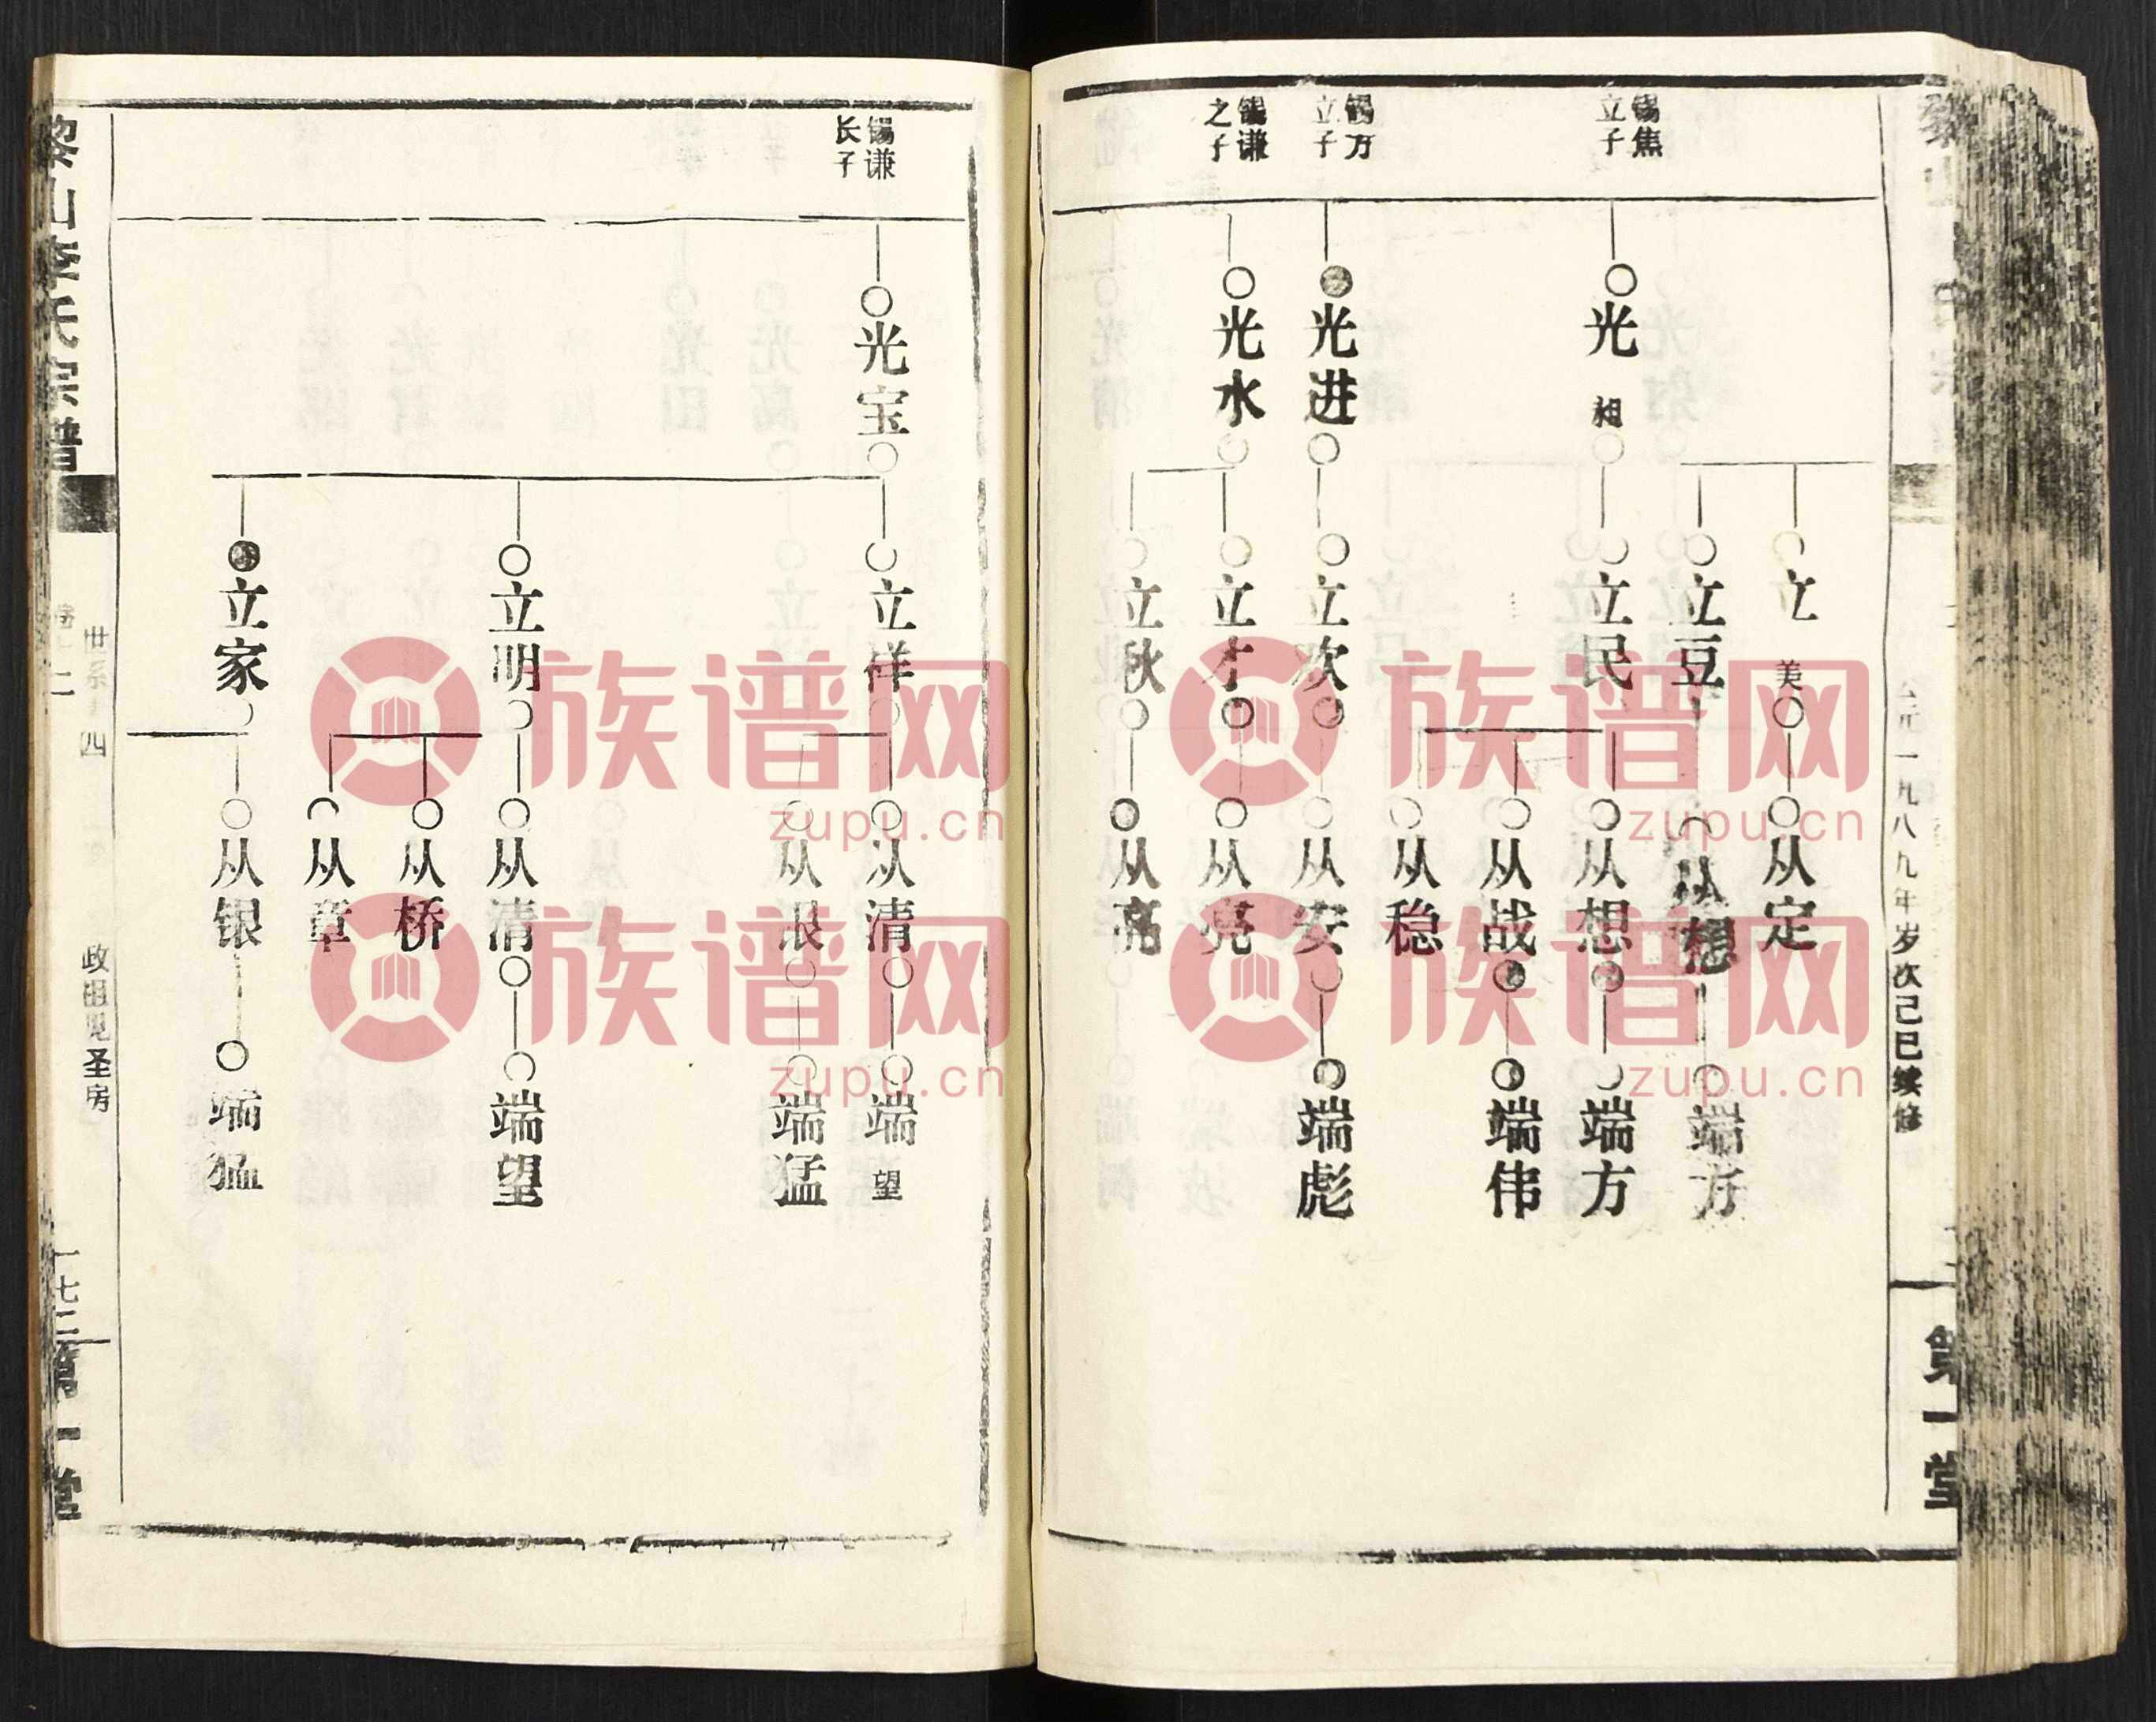 锡焦
立子
锡万
立子
锡谦
之子
光相
光进
光水
立美
立豆
立民
立欢
立才
立秋
从定
从想
从想
从战
从稳
从安
从亮
从亮
端方
端方
端伟
端彪
元一九八九年岁次己巳续修
第一堂
锡谦
长子
光宝
立祥
立明
立家
从清
从银
从清
从桥
从章
从银
端望
端猛
端望
端猛
黎山李氏宗谱
卷二
世系 四
政祖见圣房
一七二
第一堂
族谱网
zupu.cn
族谱网
zupu.cn
族谱网
zupu.cn
族谱网
zupu.cn